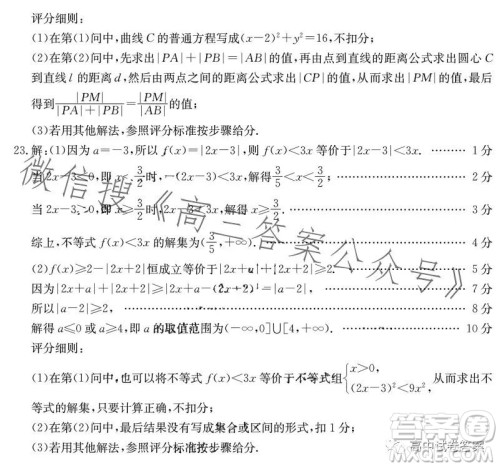 评分细则:
(1)在第(1)问中,曲线 C 的普通方程写成(x−2)²+y²=16,不扣分;
(2)在第(2)问中,先求出|PA|+|PB|=|AB|的值,再由点到直线的距离公式求出圆心 C
到直线 l 的距离 d,然后由两点之间的距离公式求出|CP|的值,从而求出|PM|的值,最后
得到|PM|/(|PA|+|PB|)=|PM|/|AB|的值;
(3)若用其他解法,参照评分标准按步骤给分.
23.解:(1)因为 a=−3,所以 f(x)=|2x−3|,则 f(x)<3x 等价于|2x−3|<3x. 1分
当 2x−3≤0,即 x≤3/2时,−(2x−3)<3x,解得3/5<x≤3/2; 2分
当 2x−3>0,即 x>3/2时,2x−3<3x,解得 x>3/2. 3分
综上,不等式 f(x)<3x 的解集为(3/5,+∞). 4分
(2)f(x)≥2−|2x+2|恒成立等价于|2x+a|+|2x+2|≥2. 5分
因为|2x+a|+|2x+2|≥|2x+a−(2x+2)|=|a−2|, 7分
所以|a−2|≥2, 8分
解得 a≤0 或 a≥4,即 a 的取值范围为(−∞,0]∪[4,+∞). 10分
评分细则:
(1)在第(1)问中,也可以将不等式 f(x)<3x 等价于不等式组{x>0, (2x−3)²<9x², 从而求出不
等式的解集,只要计算正确,不扣分;
(2)在第(1)问中,最后结果没有写成集合或区间的形式,扣1分;
(3)若用其他解法,参照评分标准按步骤给分.
微信搜《高三答案公众号》
高中试卷答案
答案圈